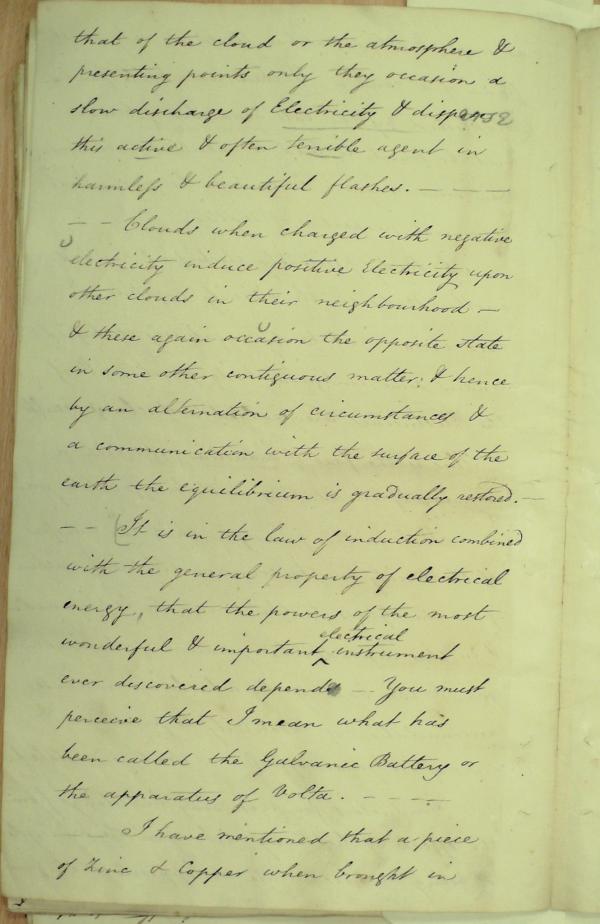 that of the cloud or the atmosphere &
presenting points only they occasion a
slow discharge of Electricity &
this active & often terrible agent in
harmless & beautiful flashes. — — —
— — Clouds when charged with negative
electricity induce positive Electricity upon
other clouds in their neighbourhood —
& these again occasion the opposite state
in some other contiguous matter; & hence
by an alternation of circumstances &
a communication with the surface of the
earth the equilibrium is gradually restored. —
— — It is in the law of induction combined
with the general property of electrical
energy, that the powers of the most
electrical
wonderful & important ^ instrument
ever discovered depends — You must
perceive that I mean what has
been called the Galvanic Battery or
the apparatus of Volta. — — — —
I have mentioned that a piece
of Zinc & Copper when brought in